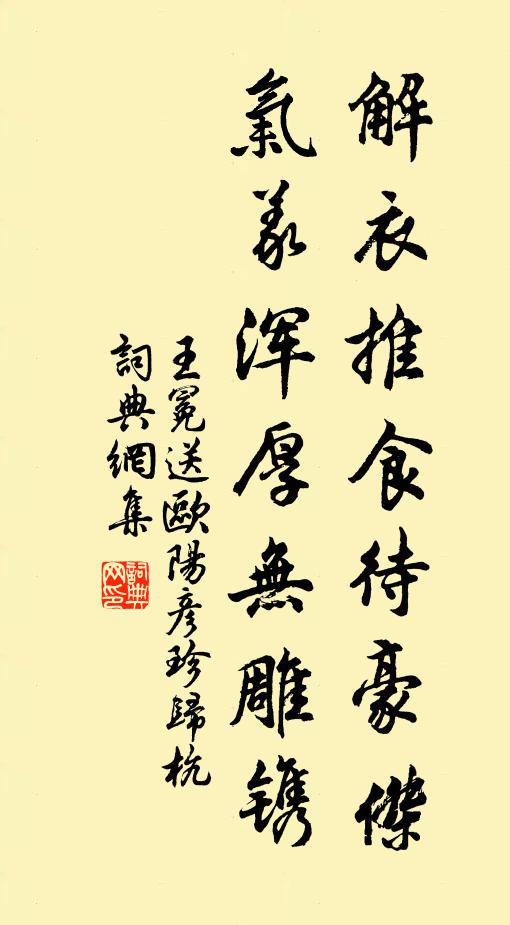 解衣推食待豪傑
氣義浑厚無雕镌
王冕送歐陽彦珍歸杭
詞典網集
詞典网印